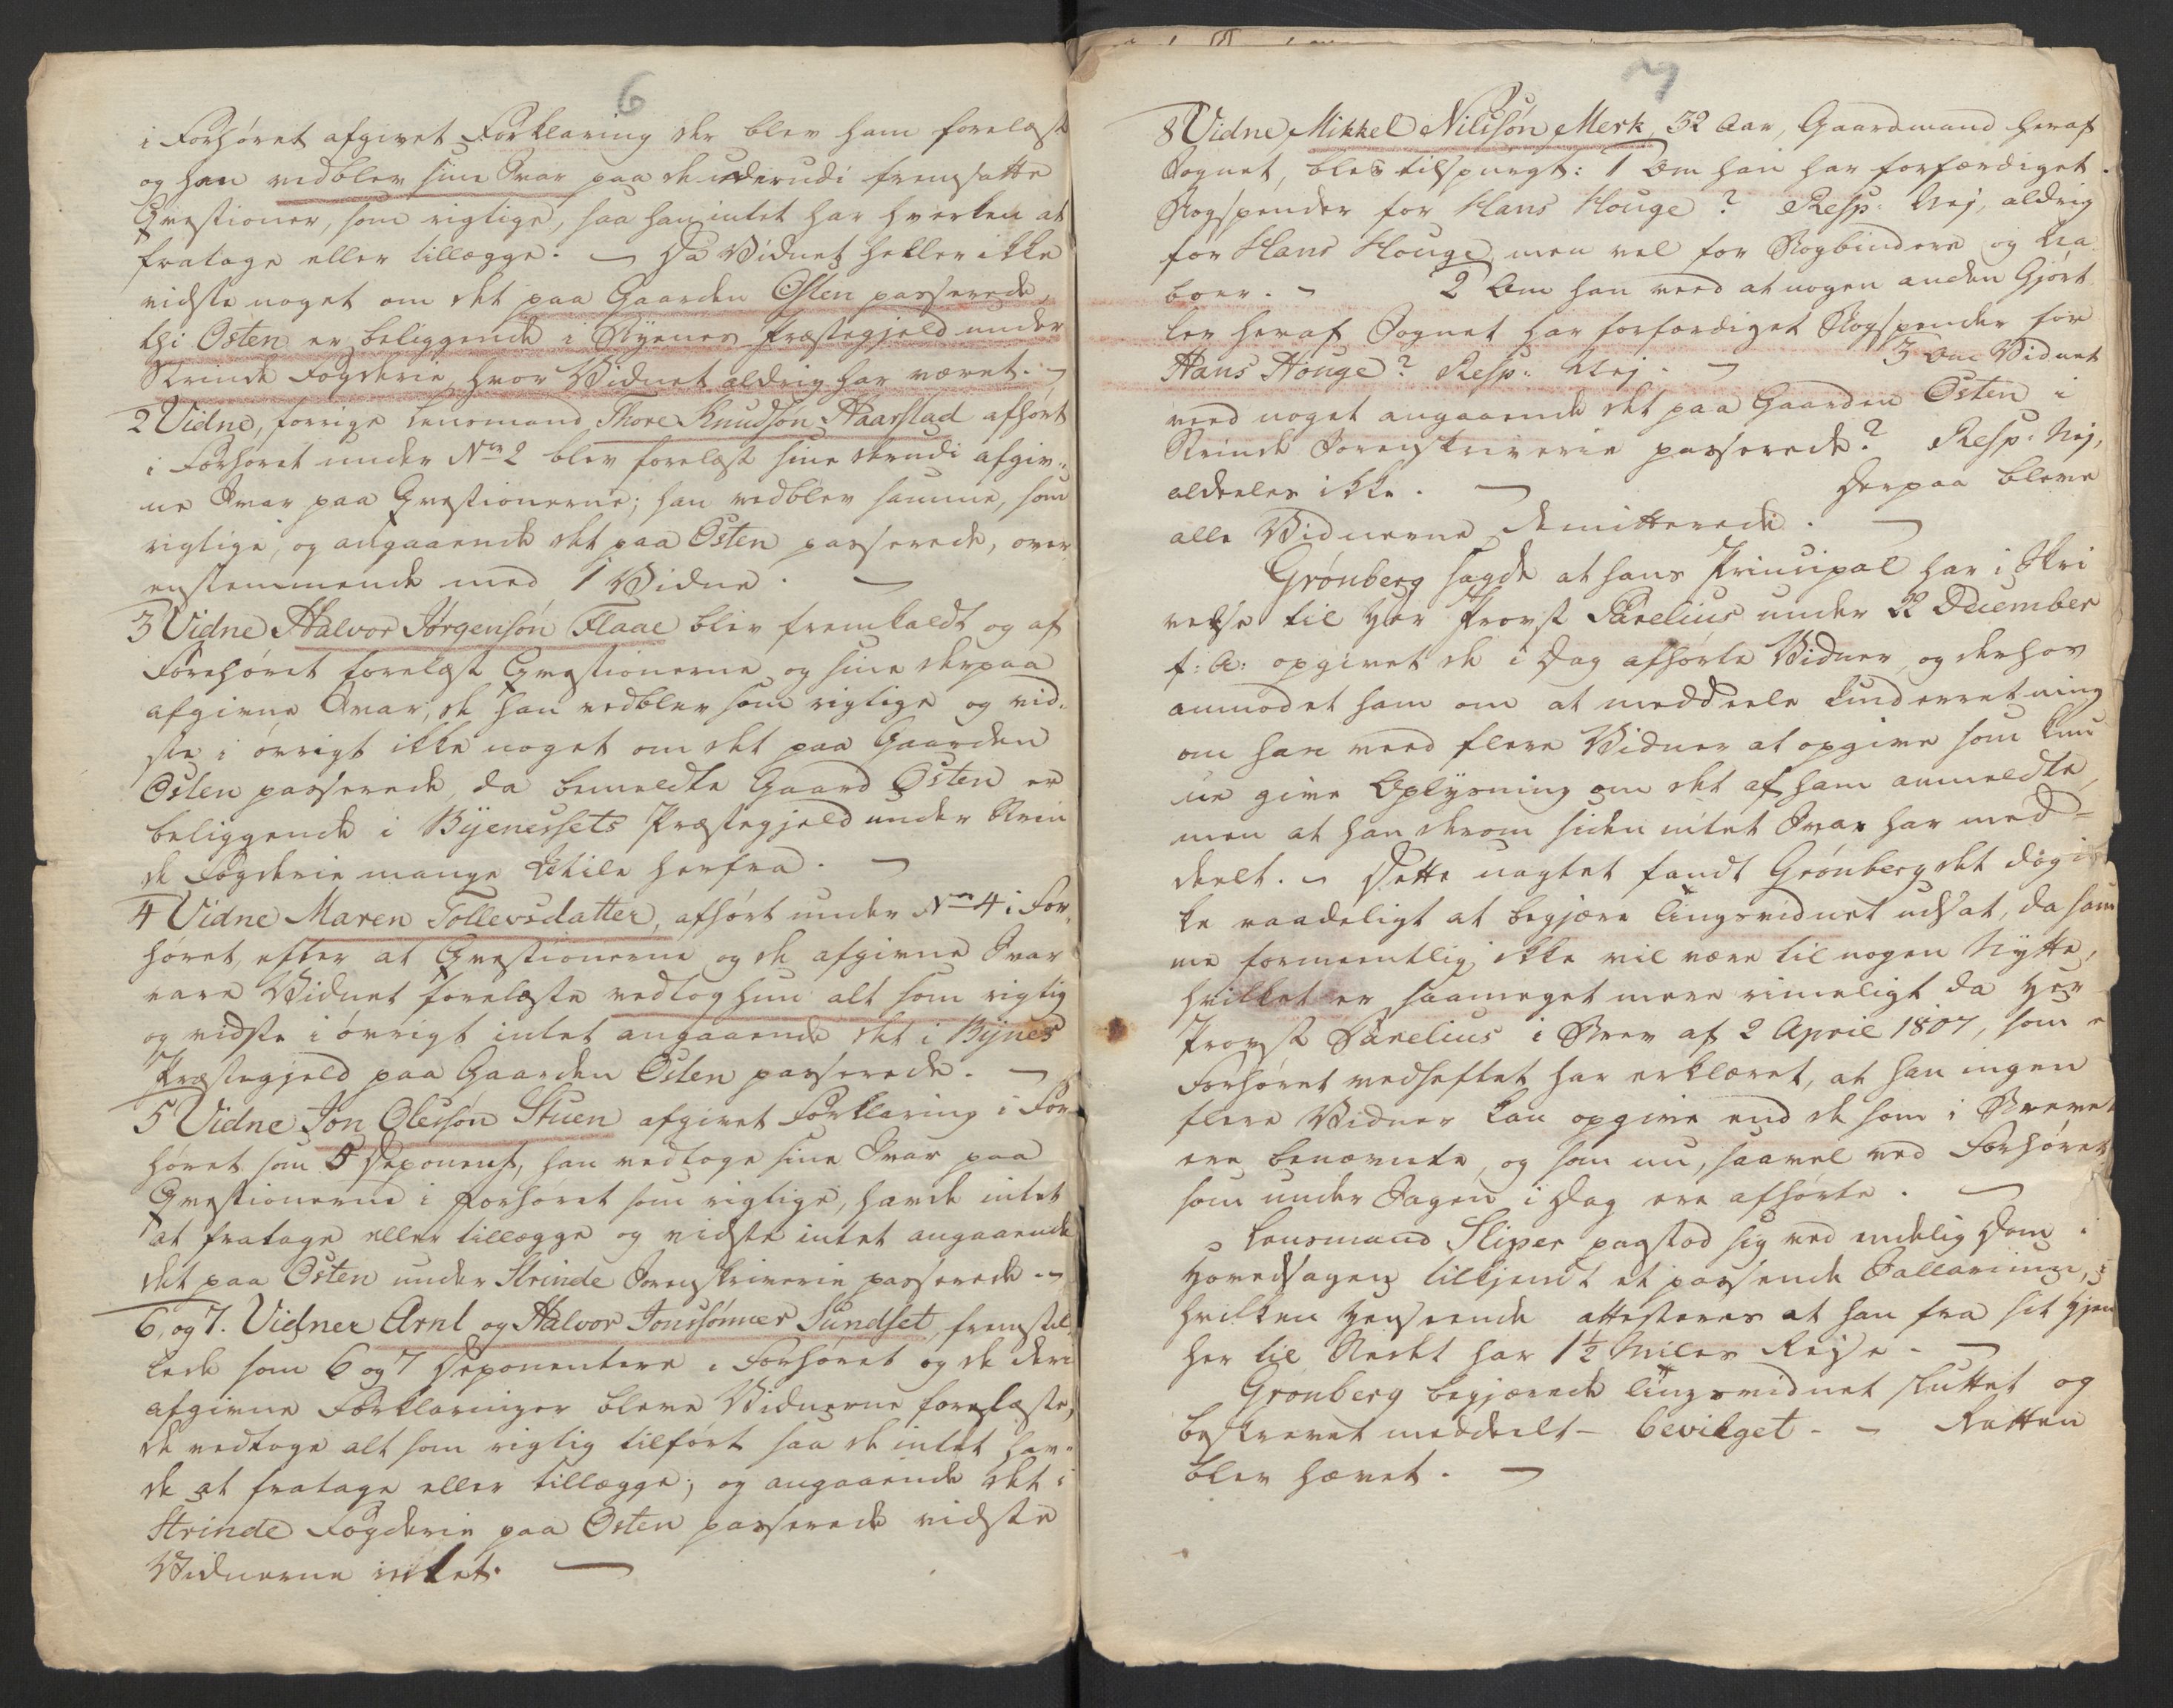 6
i Forhöret afgivet Forklaring der blev ham forelæst
og han vedblev sine Svar paa de derudi fremsatte
Qvæstioner, som rigtige, saa han intet har hverken at
fratage eller tillægge. – Da Vidnet heller ikke
vidste noget om det paa Gaarden Østen passerede,
thi Østen er beliggende i Byenes Præstegjeld under
Strinde Fogderie, hvor Vidnet aldrig har været. –
2 Vidne, forrige Lensmand Thore Knudsøn Haarstad afhört
i Forhöret under No 2 blev forelæst sine derudi afgiv-
ne Svar paa Qvæstionerne; han vedblev samme, som
rigtige, og angaaende det paa Østen passerede, over
ensstemmende med 1 Vidne. –
3 Vidne Halvor Jørgensøn Flaae blev fremkaldt og af
Forehöret forelæst Qvæstionerne og sine derpaa
afgivne Svar, de han vedblev som rigtige og vid-
ste i övrigt ikke noget om det paa Gaarden
Østen passerede, da bemeldte Gaard Østen er
beliggende i Byenessets Præstegjeld under Strin
de Fogderie mange Miile herfra. –
4 Vidne Maren Tollevsdatter, afhört under No 4 i For-
höret, efter at Qvæstionerne og de afgivne Svar
vare Vidnet forelæste vedtog hun alt som rigtig
og vidste i övrigt intet angaaende det i Bynes
Præstegjeld paa Gaarden Østen passerede. –
5 Vidne Jon Olessøn Stuen afgivet Forklaring i For-
höret som 5 Deponent, han vedtoge sine Svar paa
Qvæstionerne i Forhöret som rigtige, havde intet
at fratage eller tillægge og vidste intet angaaende
det paa Østen under Strinde Sorenskriverie passerede. –
6, og 7. Vidner Arnt og Halvor Jonssønner Sundset, fremstil-
lede som 6 og 7 Deponentere i Forhöret og de deri
afgivne Forklaringer bleve Vidnerne forelæste,
de vedtoge alt som rigtig tilfört saa de intet hav-
de at fratage eller tillægge; og angaaende det i
Strinde Fogderie paa Østen passerede vidste
Vidnerne intet. –
7
8 Vidne, Mikkel Nilssøn Merk, 32 Aar, Gaardmand heraf
Sognet, blev tilspurgt: 1 Om han har forfærdiget
Skogspender for Hans Houge? Resp: Nej, aldrig
for Hans Houge, men vel for Bogbindere og
boer. – 2 Om han veed at nogen anden Gjört
ler heraf Sognet har forfærdiget Bogspender for
Hans Houge? Resp: Nej. – 3 Om Vidnet
veed noget angaaende det paa Gaarden Østen i
Strinde Sorenskriverie passerede? Resp: Nej,
aldeeles ikke. – Derpaa bleve
alle Vidnerne demitterede. –
Grønberg sagde at hans Principal har i Skri
velse til Her Provst Parelius under 22 December
f: A: opgivet de i Dag afhörte Vidner, og derhos
anmodet ham om at meddeele Underretning
om han veed flere Vidner at opgive som kun
ne give Oplysning om det af ham anmeldte,
men at han derom siden intet Svar har med-
deelt. – Dette uagtet fandt Grønberg det dog ik
ke raadeligt at begjære Tingsvidnet udsat, da sam
me formeentlig ikke vil være til nogen Nytte,
hvilket er saameget mere rimeligt da Her
Provst Parelius i Brev af 2 April 1807, som er
Forhöret vedheftet har erklæret, at han ingen
flere Vidner kan opgive end de som i Brevet
ere benævnte, og som nu, saavel ved Forhöret
som under Sagen i Dag ere afhörte. –
Lensmand Sliper paastod sig ved endelig Dom i
Hovedsagen tilkjendt et passende Sallarium, i
hvilken Henseende attesteres at han fra sit Hjem
her til Stedet har 1½ Miles Reise. –
Grønberg begjærede Tingsvidnet sluttet og
beskrevet meddeelt – bevilget – – Retten
blev hævet. –